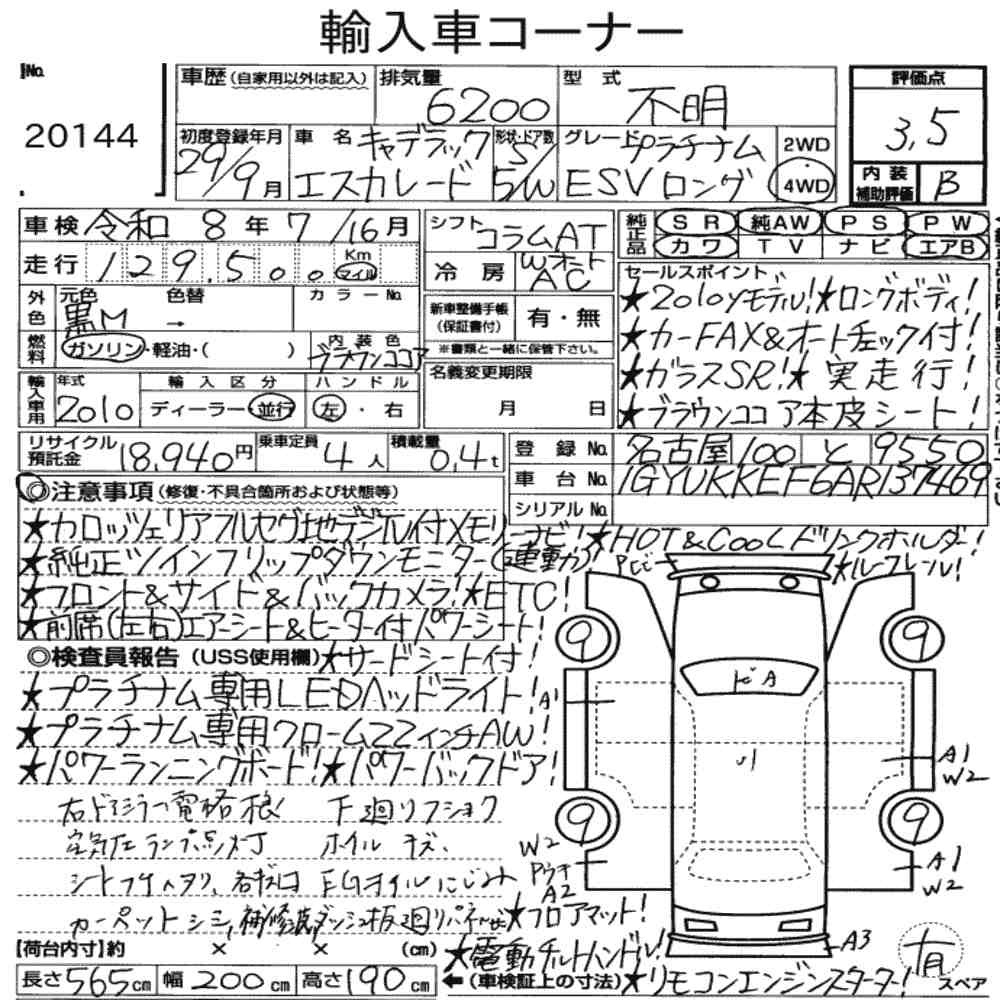 輸入車コーナー
No.
20144
車歴 (自家用以外は記入)
排気量
6200
型式
不明
評価点
3,5
初度登録年月
29/9月
車名
キャデラック
エスカレード
形状・ドア数
5/
5/W
グレード
プラチナム
ESVロング
2WD
4WD
内装
補助評価
B
車検 令和 8年 7/16月
走行 129,500
Km
マイル
シフト
コラムAT
冷房
Wオート
AC
純正品
SR 純AW PS PW
カワ TV ナビ エアB
外色
元色
黒M
色替
→
カラーNo.
燃料
ガソリン・軽油・( )
内装色
ブラウンココア
新車整備手帳
(保証書付)
有・無
※書類と一緒に保管下さい。
セールスポイント
★2010yモデル!★ロングボディ!
★カーFAX&オートチェック付!
★ガラスSR!★実走行!
★ブラウンココア本皮シート!
輸入車用
年式
2010
輸入区分
ディーラー・並行
ハンドル
左・右
名義変更期限
月 日
リサイクル
預託金
18,940円
乗車定員
4人
積載量
0,4t
登録No.
名古屋 100 と 9550
車台No.
1GYUKKEF6AR137469
シリアルNo.
◎注意事項 (修復・不具合箇所および状態等)
★カロッツェリアフルセグ地デジTV付メモリーナビ!★HOT&COOLドリンクホルダー!
★純正ツインフリップダウンモニター(連動)!
★ルーフレール!
★フロント&サイド&バックカメラ!★ETC!
★前席(左右)エアーシート&ヒーター付パワーシート!
◎検査員報告 (USS使用欄)
★サードシート付!
★プラチナム専用LEDヘッドライト!
★プラチナム専用クローム22インチAW!
★パワーランニングボード!★パワーバックドア!
右ドアミラー電格
下廻りフショク
空気圧ランプ点灯
ホイルキズ、
EGオイルにじみ
カーペットシミ,
★フロアマット!
★電動チルトハンドル!
★リモコンエンジンスターター!
9
9
9
9
A1
A1
W2
A1
W2
W2
A2
A3
有
スペア
【荷台内寸】約 × × (cm)
長さ565cm 幅200cm 高さ190cm
←(車検証上の寸法)